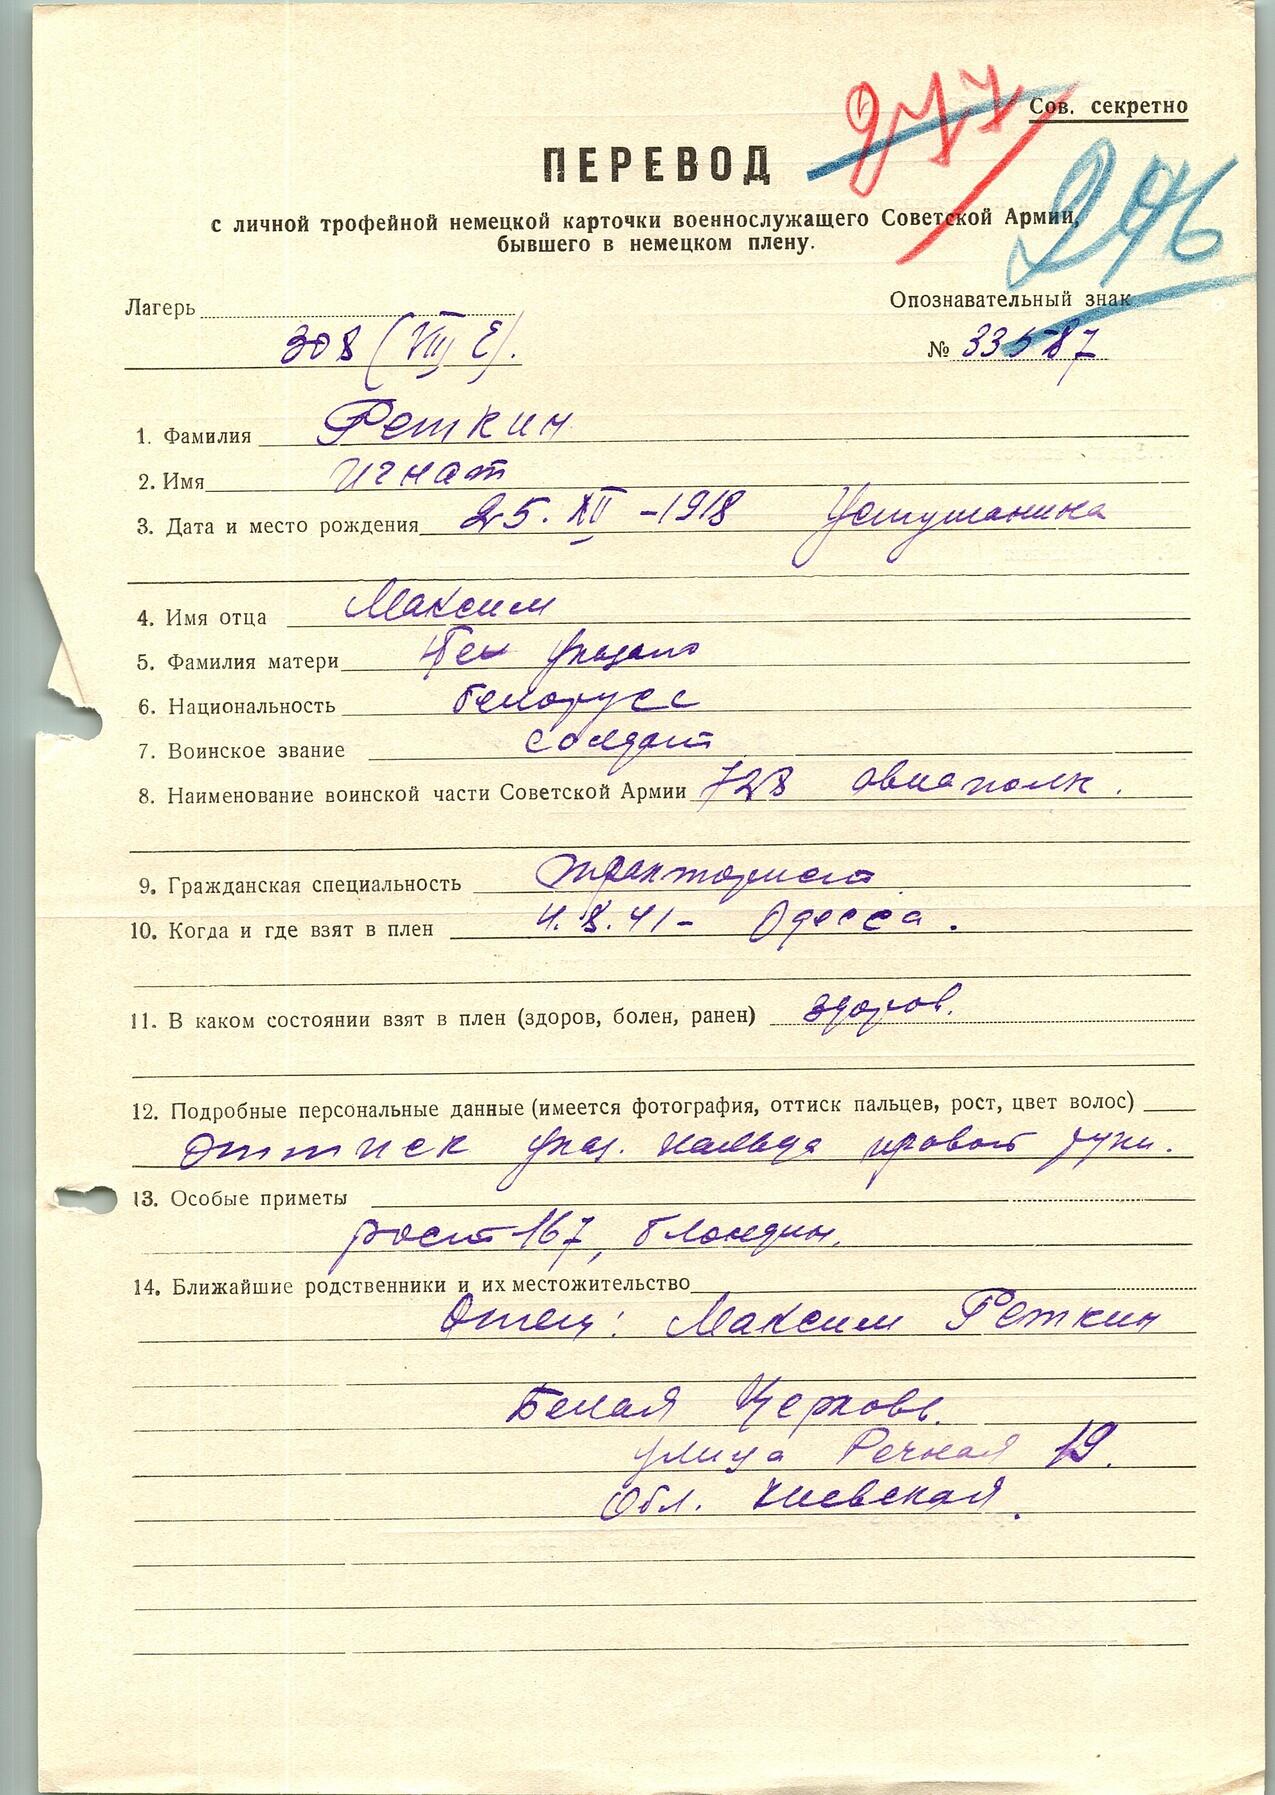 277
Сов. секретно
ПЕРЕВОД
296
с личной трофейной немецкой карточки военнослужащего Советской Армии,
бывшего в немецком плену.
Лагерь
308 (VIII E).
Опознавательный знак
№ 33587
1. Фамилия Реткин
2. Имя Игнат
3. Дата и место рождения 25. XII -1918
4. Имя отца Максим
5. Фамилия матери указано
6. Национальность белорусс
7. Воинское звание солдат
8. Наименование воинской части Советской Армии 728 авиаполк.
9. Гражданская специальность тракторист
10. Когда и где взят в плен 4.8.41- Одесса.
11. В каком состоянии взят в плен (здоров, болен, ранен) здоров.
12. Подробные персональные данные (имеется фотография, оттиск пальцев, рост, цвет волос)
Оттиск указ. пальца правой руки.
13. Особые приметы
рост 167, блондин.
14. Ближайшие родственники и их местожительство
Отец: Максим Реткин
Белая Церковь
улица Речная 19.
Обл. Киевская.